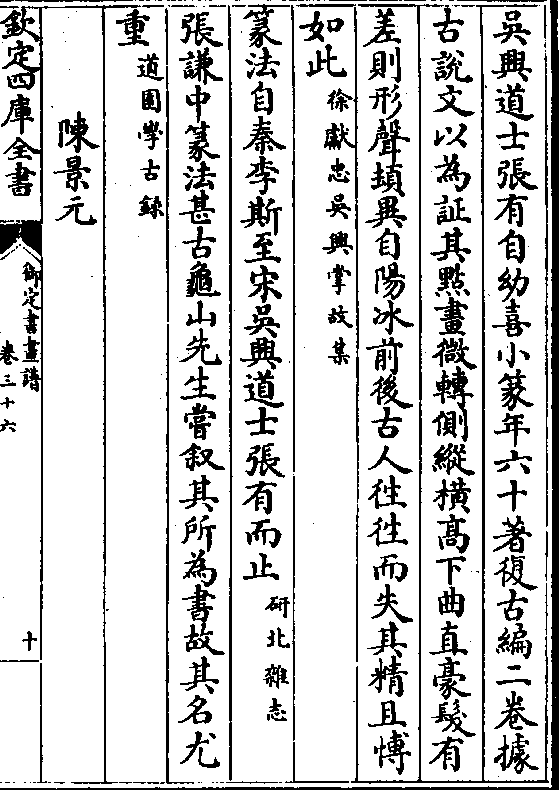 吳興道士張有自幼喜小篆年六十著復古編二卷據
古說文以為証其點畫微轉側縱橫高下曲直豪髮有
差則形聲頓異自陽冰前後古人徃徃而失其精且愽
如此徐獻忠吳興掌故集
篆法自秦李斯至宋吳興道士張有而止研北雜志
張謙中篆法甚古龜山先生嘗叙其所為書故其名尤
重道園學古録
陳景元
欽定四庫全書
御定書畫譜
卷三十六
十